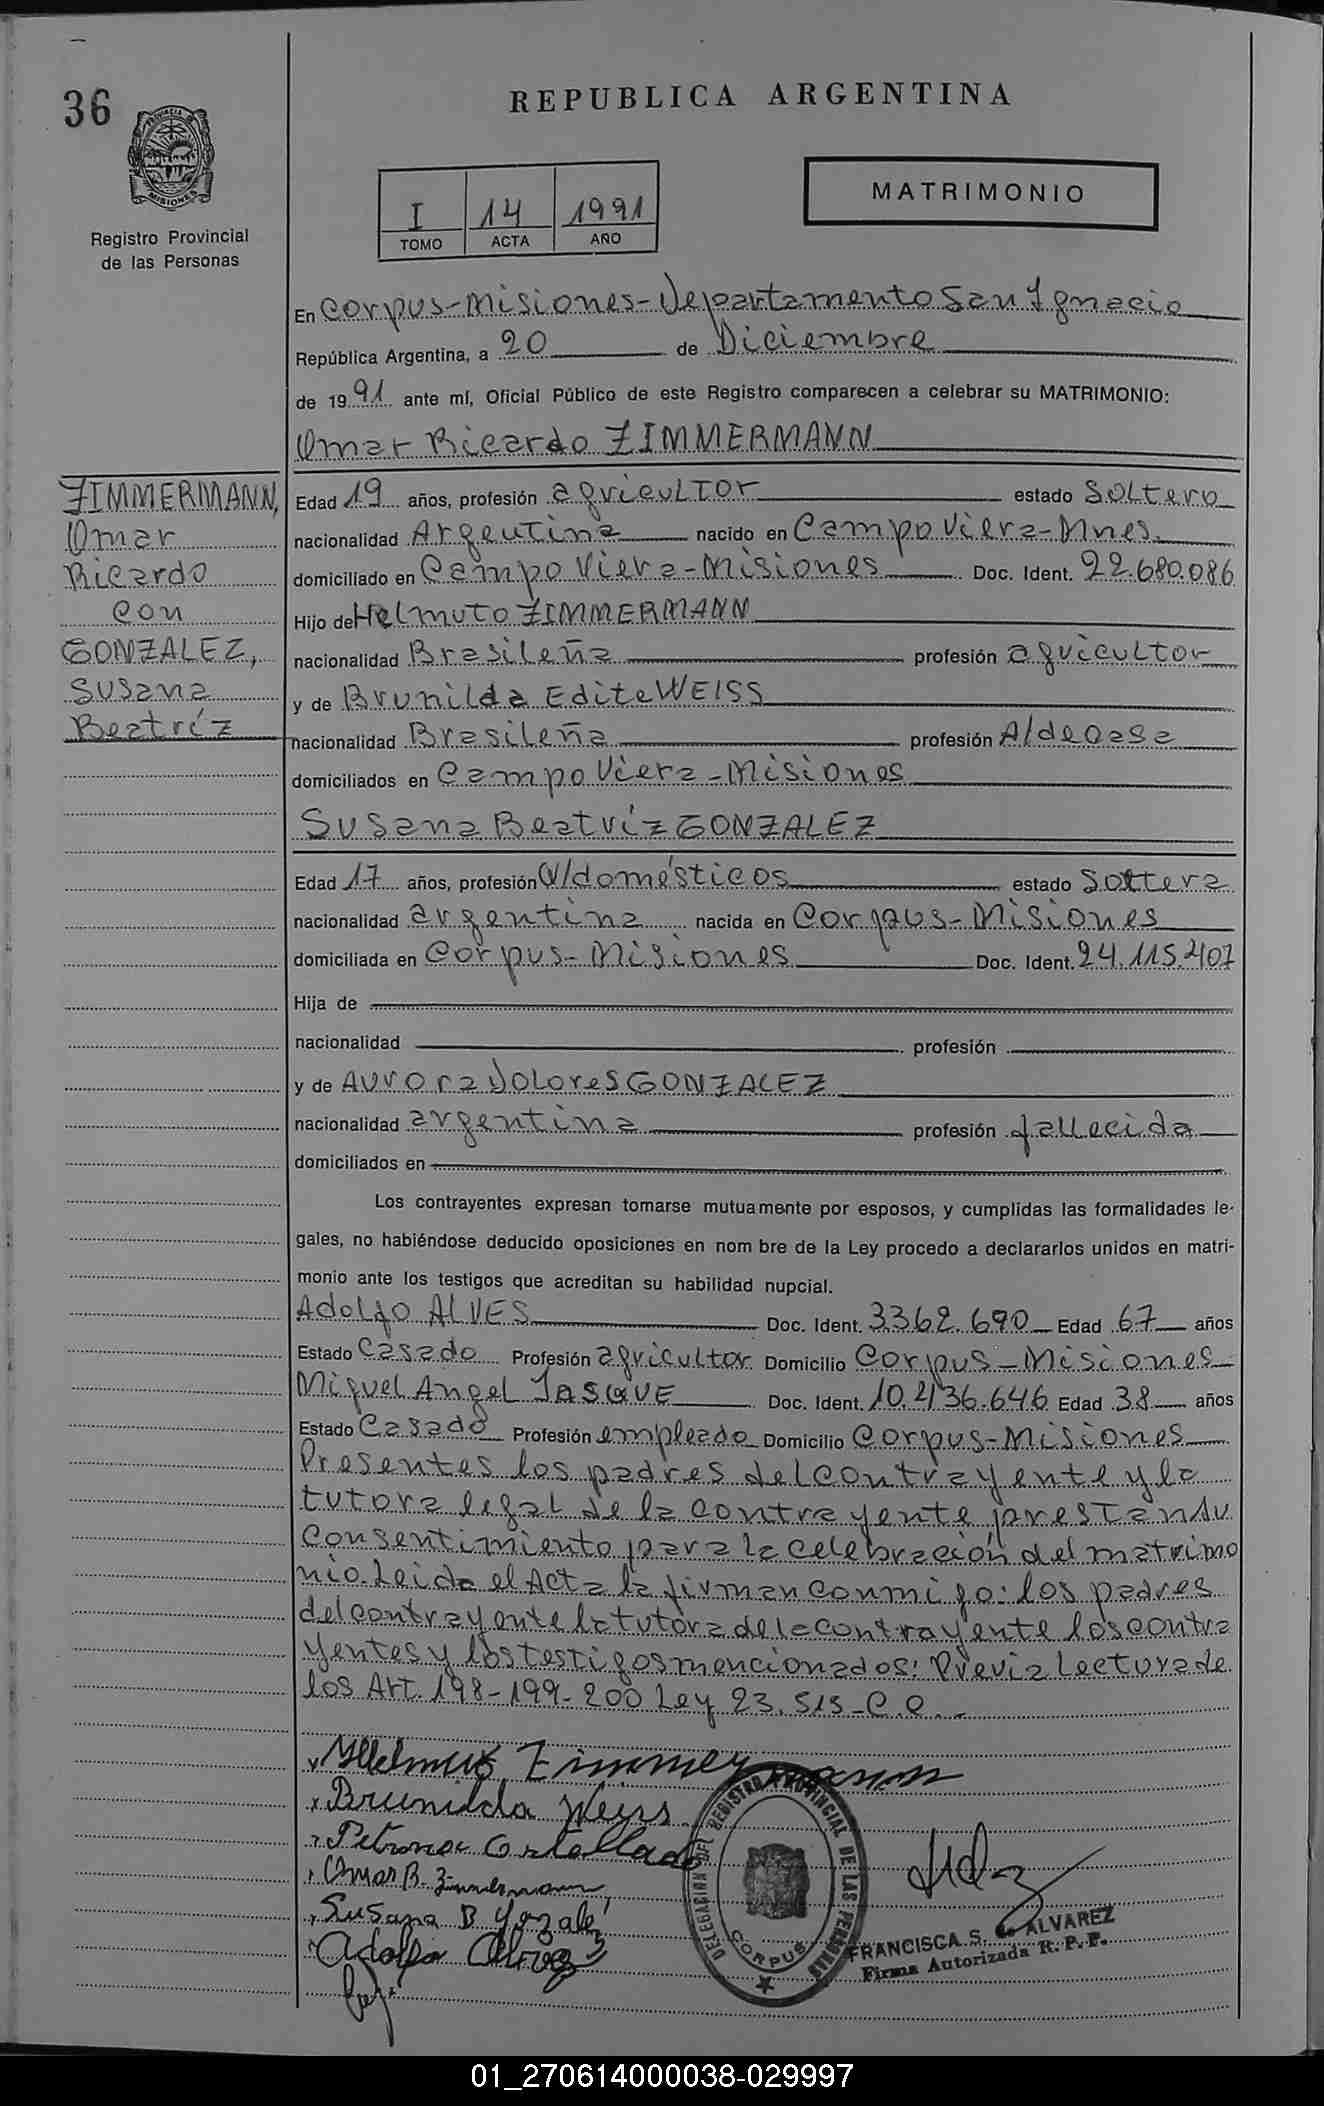 36
REPUBLICA ARGENTINA
PROVINCIA DE
MISIONES
Registro Provincial
de las Personas
I 14 1991
TOMO ACTA AÑO
MATRIMONIO
En Corpus-Misiones-Departamento San Ignacio
República Argentina, a 20 de Diciembre
de 1991 ante mí, Oficial Público de este Registro comparecen a celebrar su MATRIMONIO:
Omar Ricardo ZIMMERMANN
ZIMMERMANN,
Omar
Ricardo
con
GONZALEZ,
Susana
Beatríz
Edad 19 años, profesión agricultor estado soltero
nacionalidad Argentina nacido en Campo Viera-Mnes.
domiciliado en Campo Viera-Misiones Doc. Ident. 22.680.086
Hijo de Helmuto ZIMMERMANN
nacionalidad Brasileña profesión agricultor
y de Brunilda Edite WEISS
nacionalidad Brasileña profesión A/de casa
domiciliados en Campo Viera-Misiones
Susana Beatríz GONZALEZ
Edad 17 años, profesión Q/domésticos estado soltera
nacionalidad argentina nacida en Corpus-Misiones
domiciliada en Corpus-Misiones Doc. Ident. 24.115.407
Hija de
nacionalidad profesión
y de Aurora Dolores GONZALEZ
nacionalidad argentina profesión fallecida
domiciliados en
Los contrayentes expresan tomarse mutuamente por esposos, y cumplidas las formalidades le-
gales, no habiéndose deducido oposiciones en nom bre de la Ley procedo a declararlos unidos en matri-
monio ante los testigos que acreditan su habilidad nupcial.
Adolfo ALVES Doc. Ident. 3362.690 Edad 67 años
Estado Casado Profesión agricultor Domicilio Corpus-Misiones
Miguel Angel JASQUE Doc. Ident. 10.436.646 Edad 38 años
Estado Casado Profesión empleado Domicilio Corpus-Misiones
Presentes los padres del contrayente y la
tutora legal de la contrayente prestando
consentimiento para la celebración del matrimo
nio. Leida el Acta la firman conmigo: los padres
del contrayente la tutora de la contrayente los contra
yentes y los testigos mencionados: Previa Lectura de
los Art. 198-199-200 Ley 23.515-C.C.
Helmut Zimmermann
Brunilda Weiss
Petrona
Omar R. Zimmermann
Susana B
Adolfo
DELEGACION DEL REGISTRO PROVINCIAL DE LAS PERSONAS
CORPUS
FRANCISCA S. de ALVAREZ
Firma Autorizada R. P. P.
01_270614000038-029997